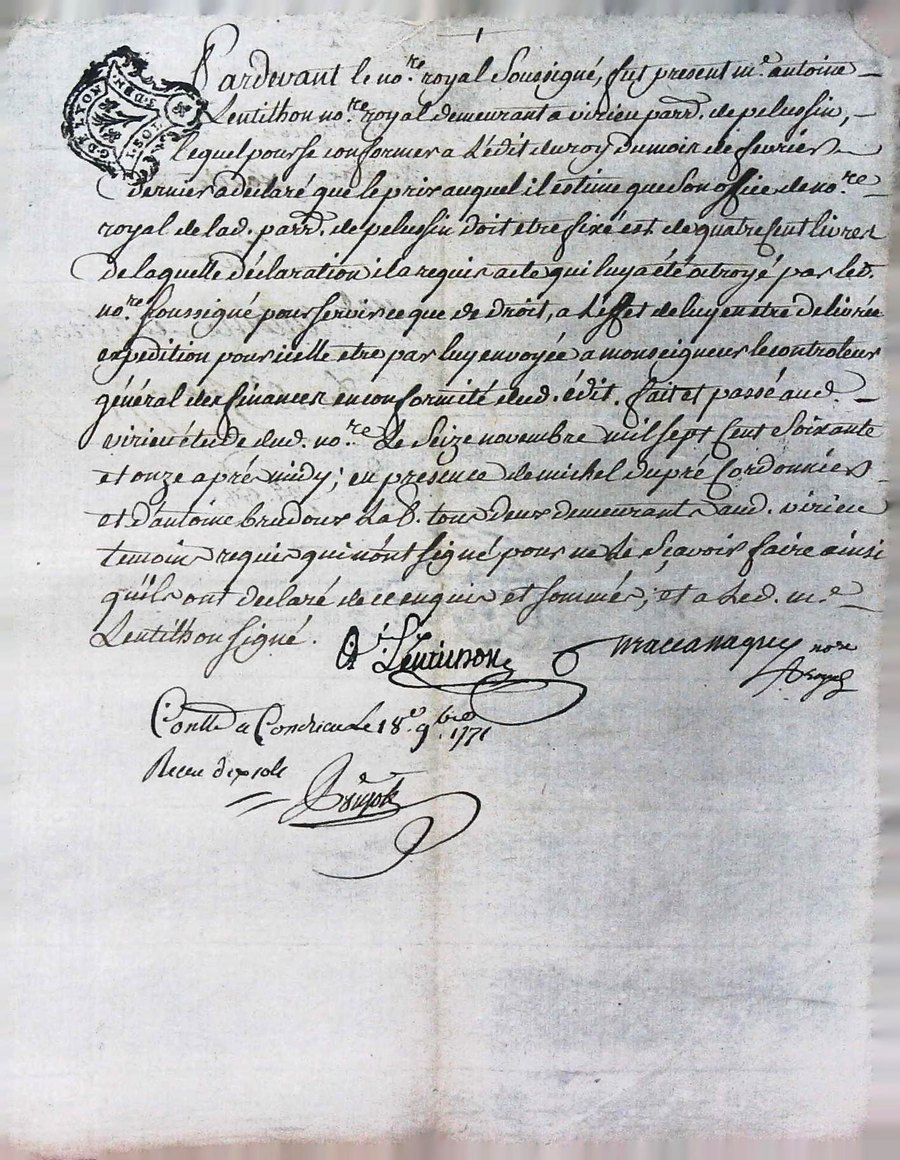 Pardevant le no.re royal Soussigné, fut present m.e antoine
Lentilhon no.re royal demeurant a virieu parr. de pelussin,
lequel pour se conformer a L'édit du roy du mois de fevrier
dernier a declaré que le prix auquel il estime que son office de no.re
royal de lad. parr. de pelussin doit etre fixé est de quatre Cent livres
de laquelle déclaration il a requis acte qui luy a été octroyé par led.
no.re soussigné pour servir ce que de droit, a L'effet de luy en etre delivrée
expedition pour icelle etre par luy envoyée a monseigneur le controleur
général des finances en conformité dud. édit. fait et passé aud.
virieu étude dud. no.re Le Seize novembre mil sept Cent Soixante
et onze aprés midy; en presence de michel dupré Cordonnier
et d'antoine Lab. tous deux demeurants aud. virieu
temoins requis qui n'ont signé pour ne Le Sçavoir faire ainsi
qu'ils ont declaré de ce enquis et sommés; et a Led. m.e
Lentilhon signé.
Lentilhon no.re royal
Contllé a Condrieu Le 18.e 9.bre 1771
Receu dix sols
GDE LYON